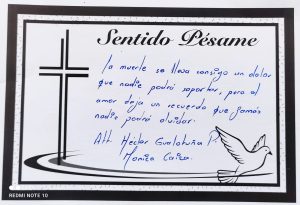 Sentido Pésame
la muerte se lleva consigo un dolor
que nadie podrá soportar, pero el
amor deja un recuerdo que jamás
nadie podrá olvidar.
Att. Héctor Gualotuña
Monica
REDMI NOTE 10